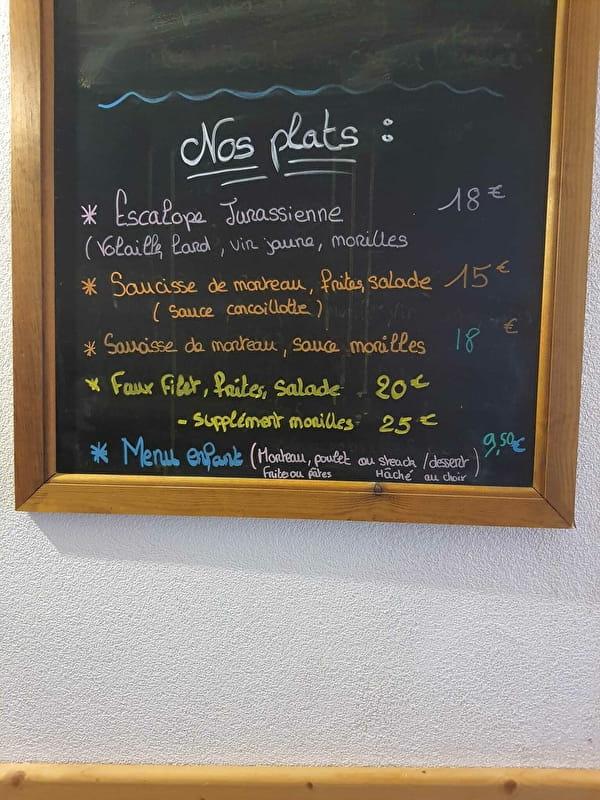 Nos plats :
* Escalope Jurassienne 18 €
(Volaille, lard, vin jaune, morilles
* Saucisse de morteau, frites, salade 15 €
( sauce cancoillotte )
* Saucisse de morteau, sauce morilles 18 €
* Faux Filet, frites, salade 20 €
- supplément morilles 25 €
* Menu enfant (Morteau, poulet ou steack / dessert) 9,50 €
Frite ou pâtes Hâché au choix